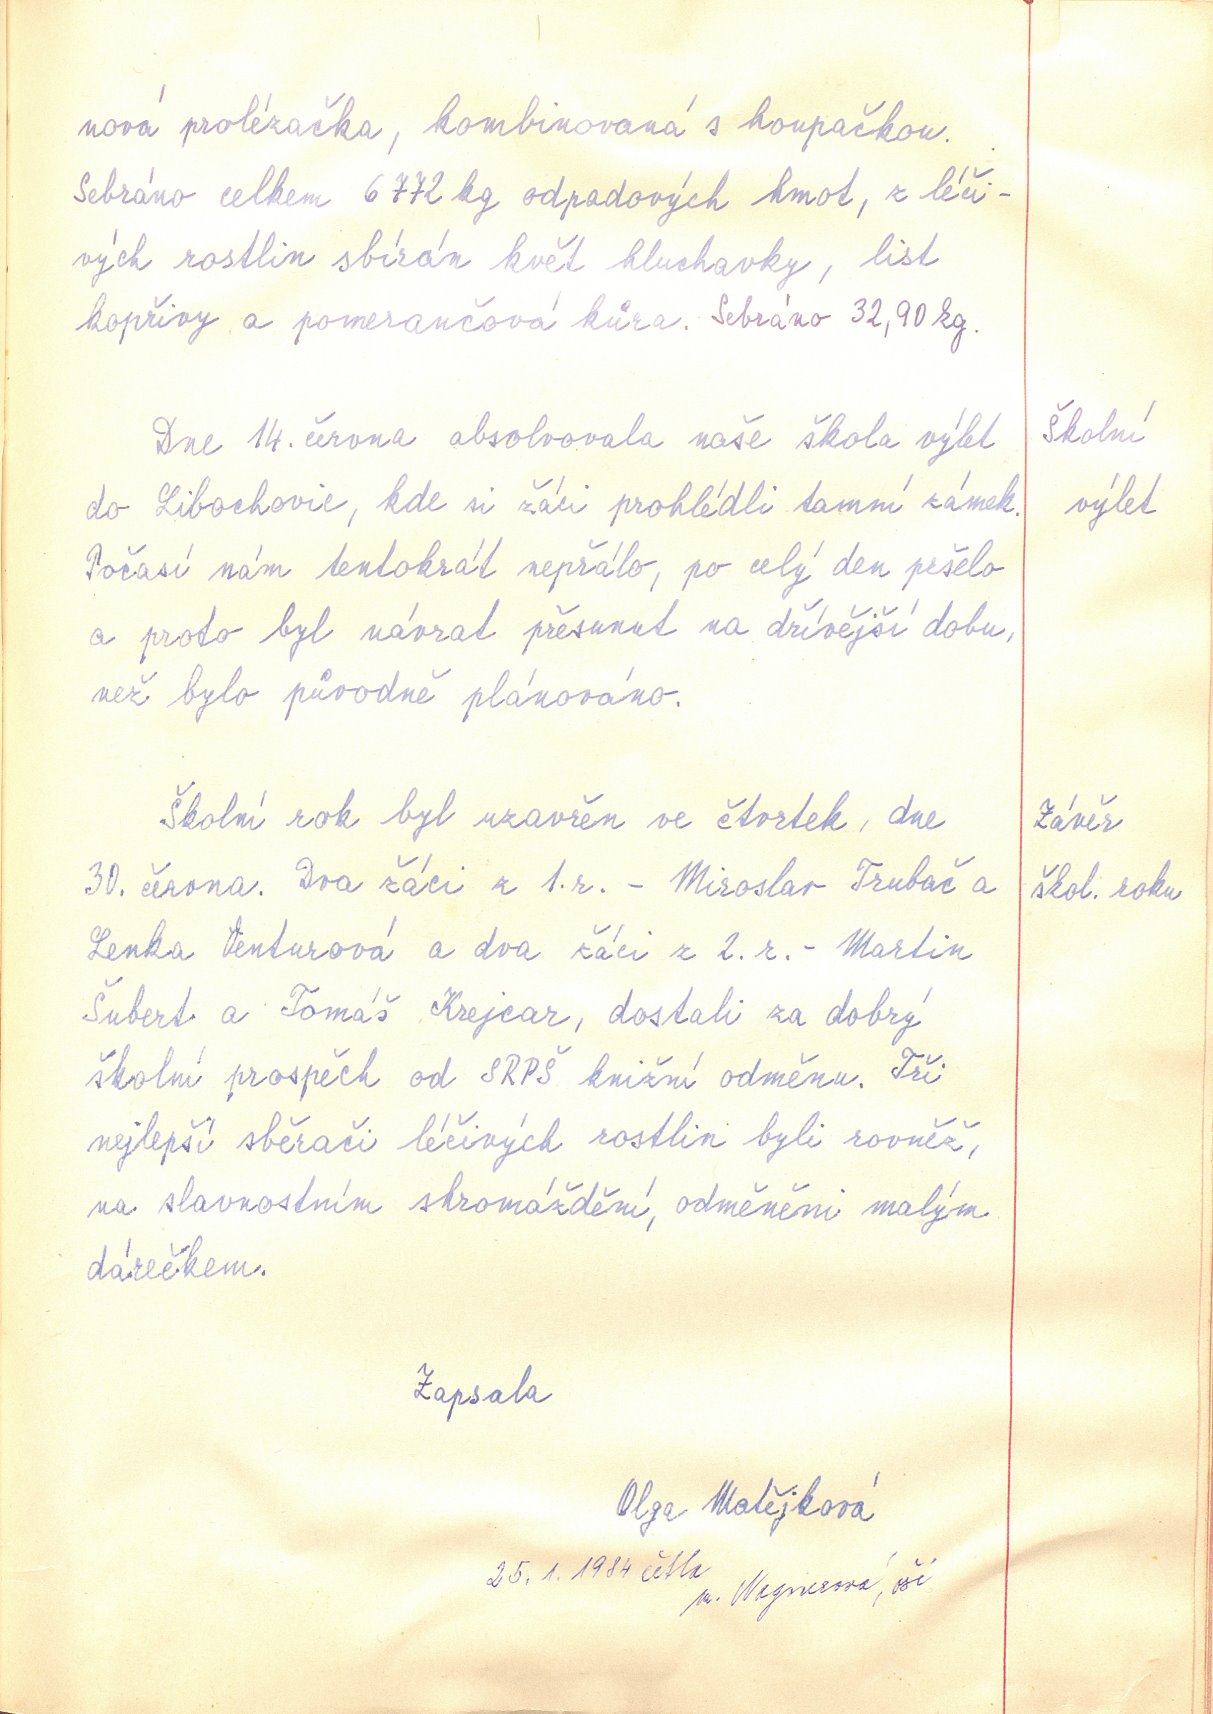 nová prolézačka, kombinovaná s houpačkou.
Sebráno celkem 6 772 kg odpadových hmot, z léči-
vých rostlin sbírán květ hluchavky, list
kopřivy a pomerančová kůra. Sebráno 32,90 kg.
Dne 14. června absolvovala naše škola výlet
Školní
do Libochovic, kde si žáci prohlédli tamní zámek.
výlet
Počasí nám tentokrát nepřálo, po celý den pršelo
a proto byl návrat přesunut na dřívější dobu,
než bylo původně plánováno.
Školní rok byl uzavřen ve čtvrtek, dne
Závěr
30. června. Dva žáci z 1. r. - Miroslav Trubač a
škol. roku
Lenka Venturová a dva žáci z 2. r. - Martin
Šubert a Tomáš Krejcar, dostali za dobrý
školní prospěch od SRPŠ knižní odměnu. Tři
nejlepší sběrači léčivých rostlin byli rovněž,
na slavnostním shromáždění, odměněni malým
dárečkem.
Zapsala
Olga Matějková
25. 1. 1984 četla
Wagnerová, oši